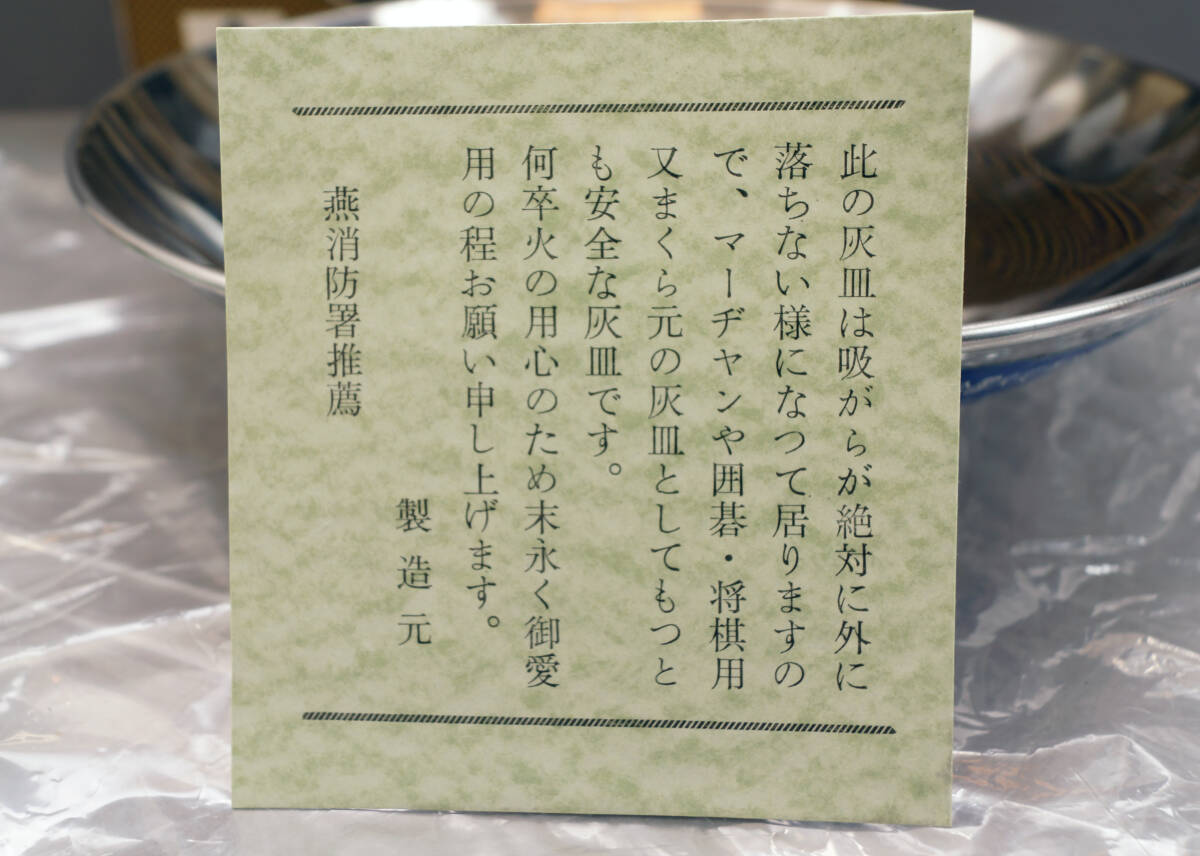 此の灰皿は吸がらが絶対に外に
落ちない様になつて居りますの
で、マーヂヤンや囲碁・将棋用
又まくら元の灰皿としてもつと
も安全な灰皿です。
何卒火の用心のため末永く御愛
用の程お願い申し上げます。
製造元
燕消防署推薦